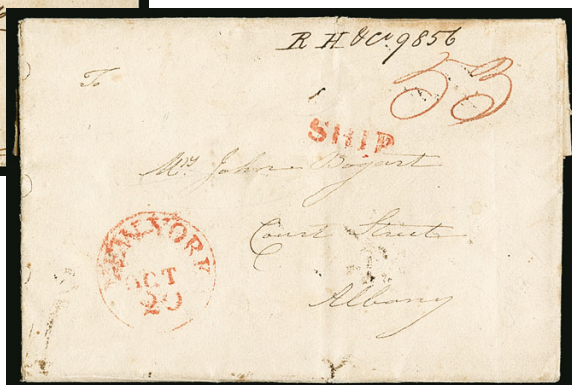 R H & Co. 9856
To
53
SHIP
Mrs John Bogart
Court Street
Albany
NEW-YORK
OCT
29